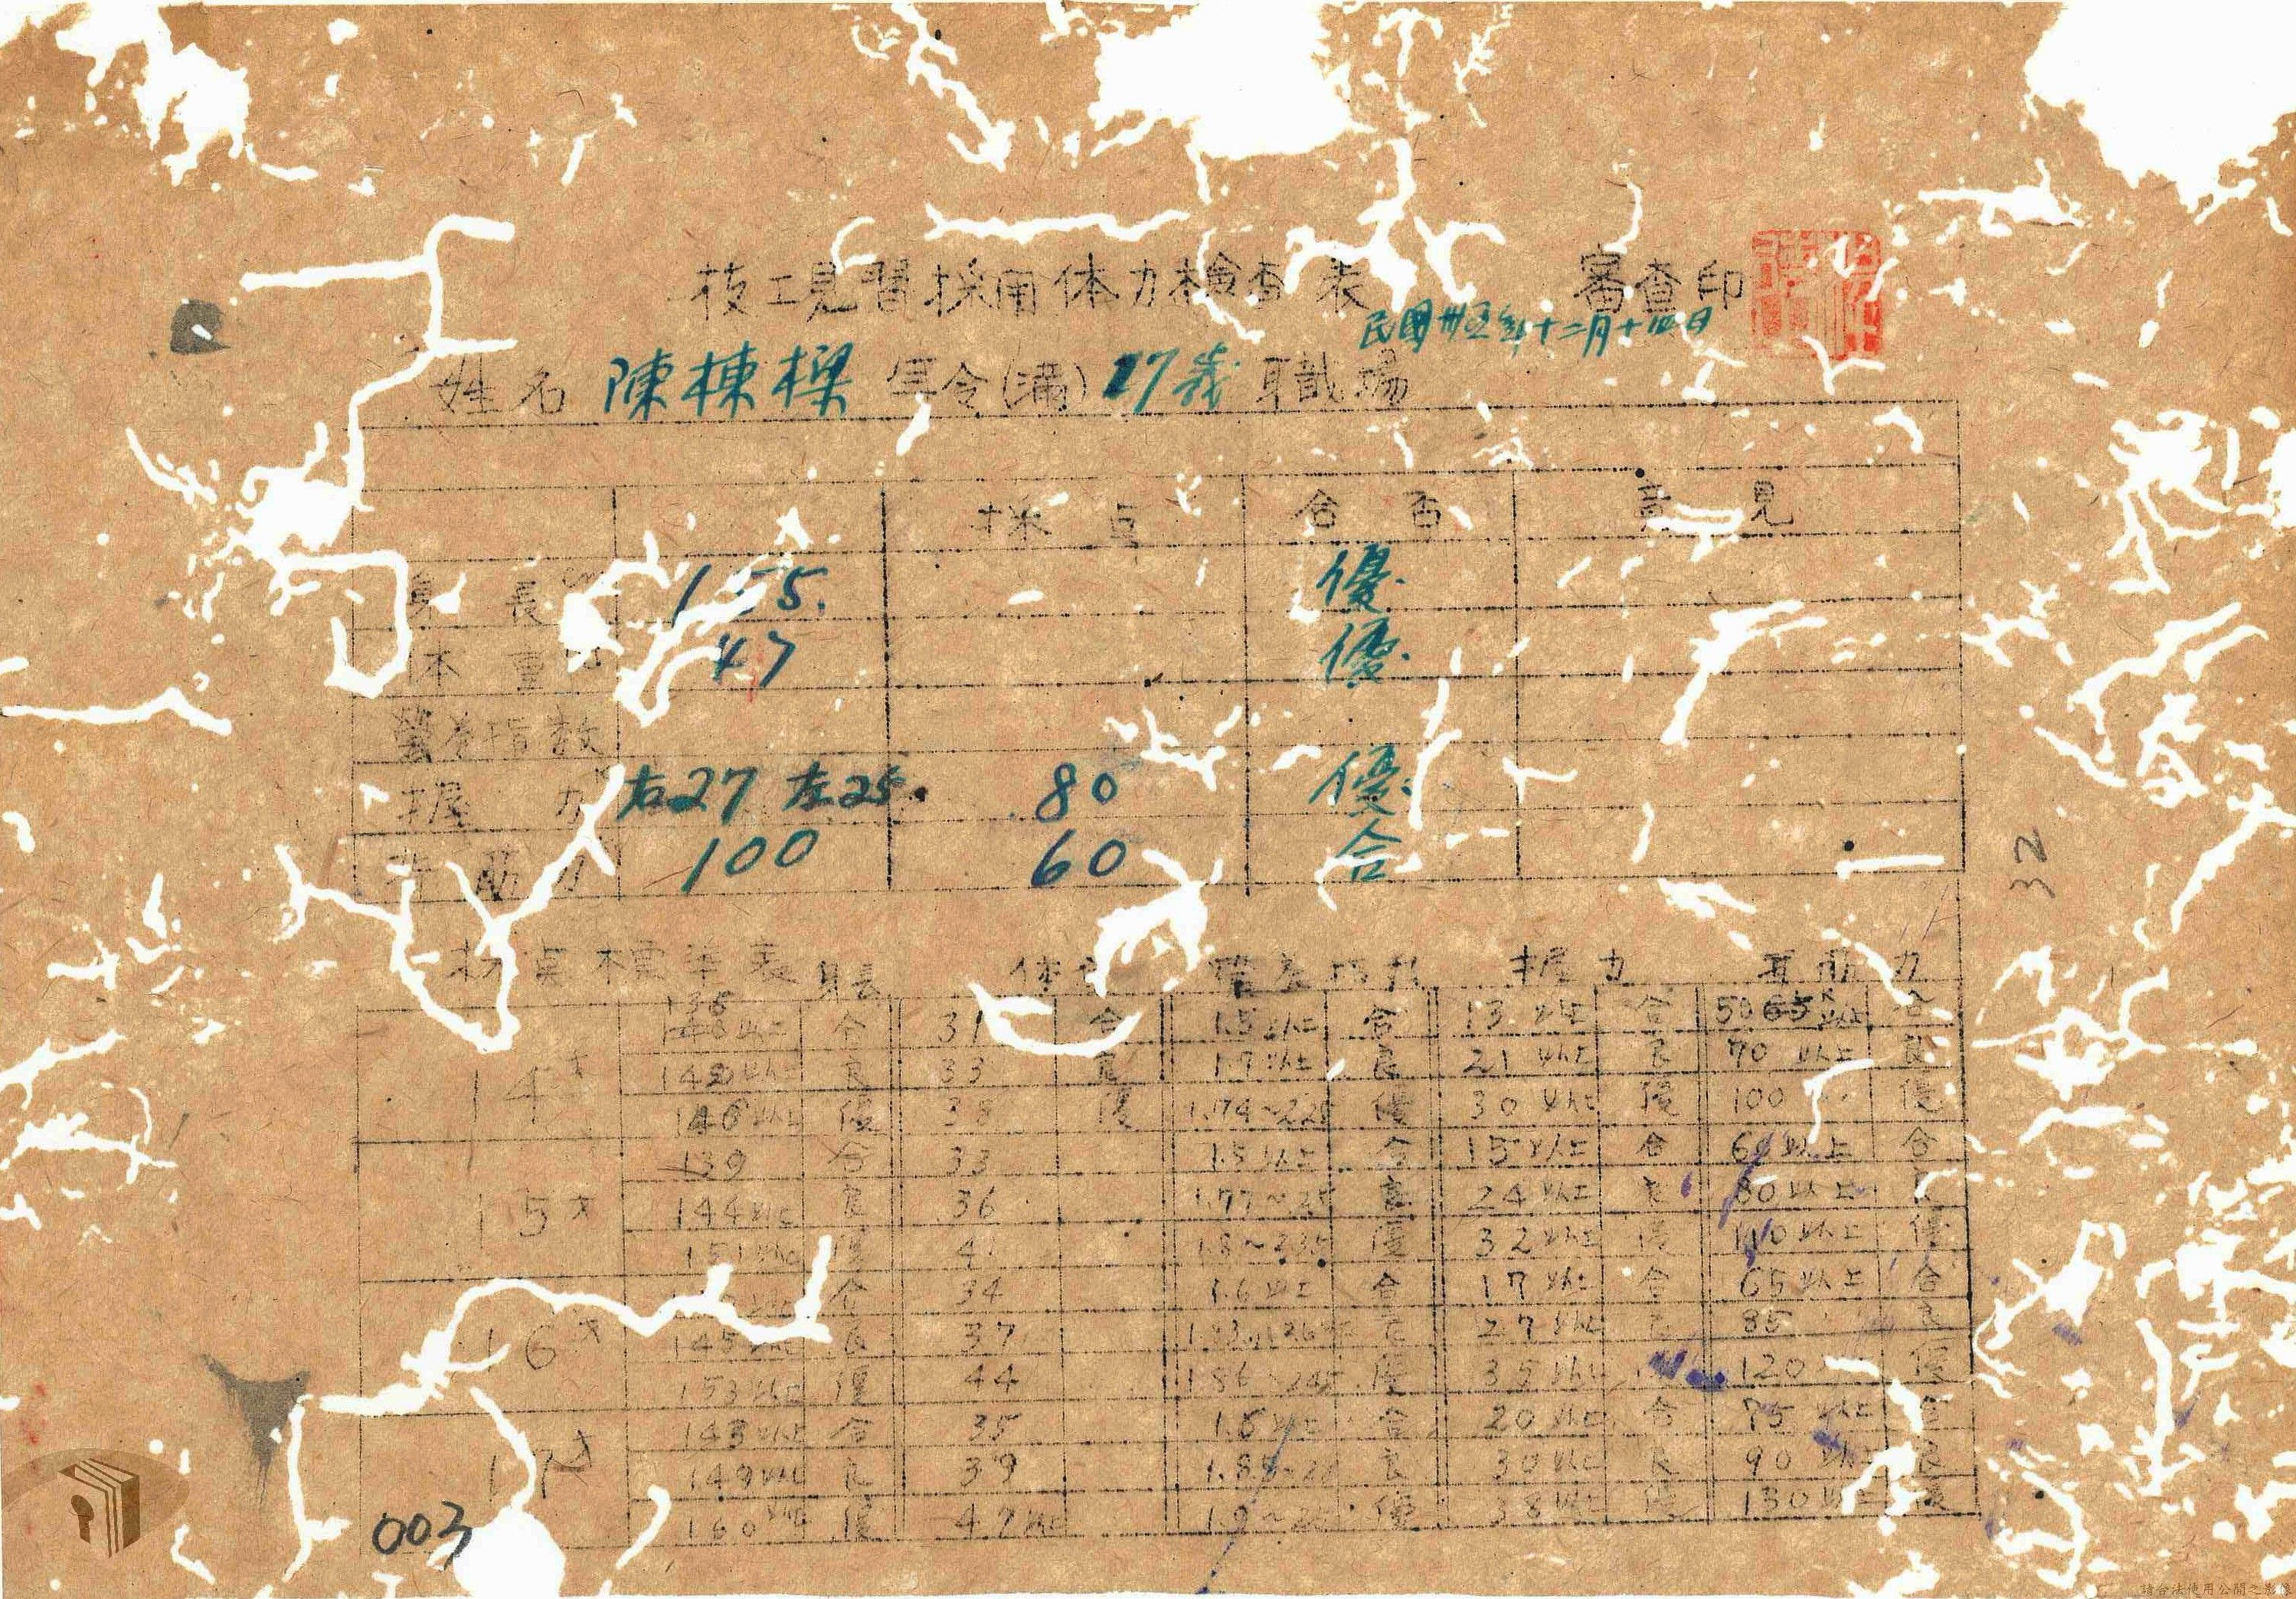 技工見習採用体力檢查表 審查印
民國卅五年十二月十四日
姓名 陳棟樑 年令(満) 17歲 職場
採点 合否 意見
身長 cm 155. 優.
体重 47 優.
營養指数
握力 右27 左25. 80 優.
背筋力 100 60 合
32
採点標準表 身長 体重 營養指数 握力 背筋力
14才 138 以上 合 31 合 1.5以上 合 13 以上 合 50 65 以上 合
以上 良 33 良 1.7以上 良 21 以上 良 70 以上 良
以上 優 38 優 優 30 以上 優 100 優
15才 139 合 33 1.5以上 合 15以上 合 以上 合
144以上 良 36 良 24以上 良 80以上 良
151以上 優 41 優 32以上 優 110以上 優
16才 合 34 1.6以上 合 17以上 合 65以上 合
145以上 良 37 27以上 良 85 良
153以上 優 44 優 35以上 120 優
17才 143以上 合 35 1.6以上 合 20以上 合 75 以上 合
149以上 良 39 良 30以上 良 90 以上 良
160以上 優 47以上 優 38以上 優 130以上 優
003
請合法使用公開之影像